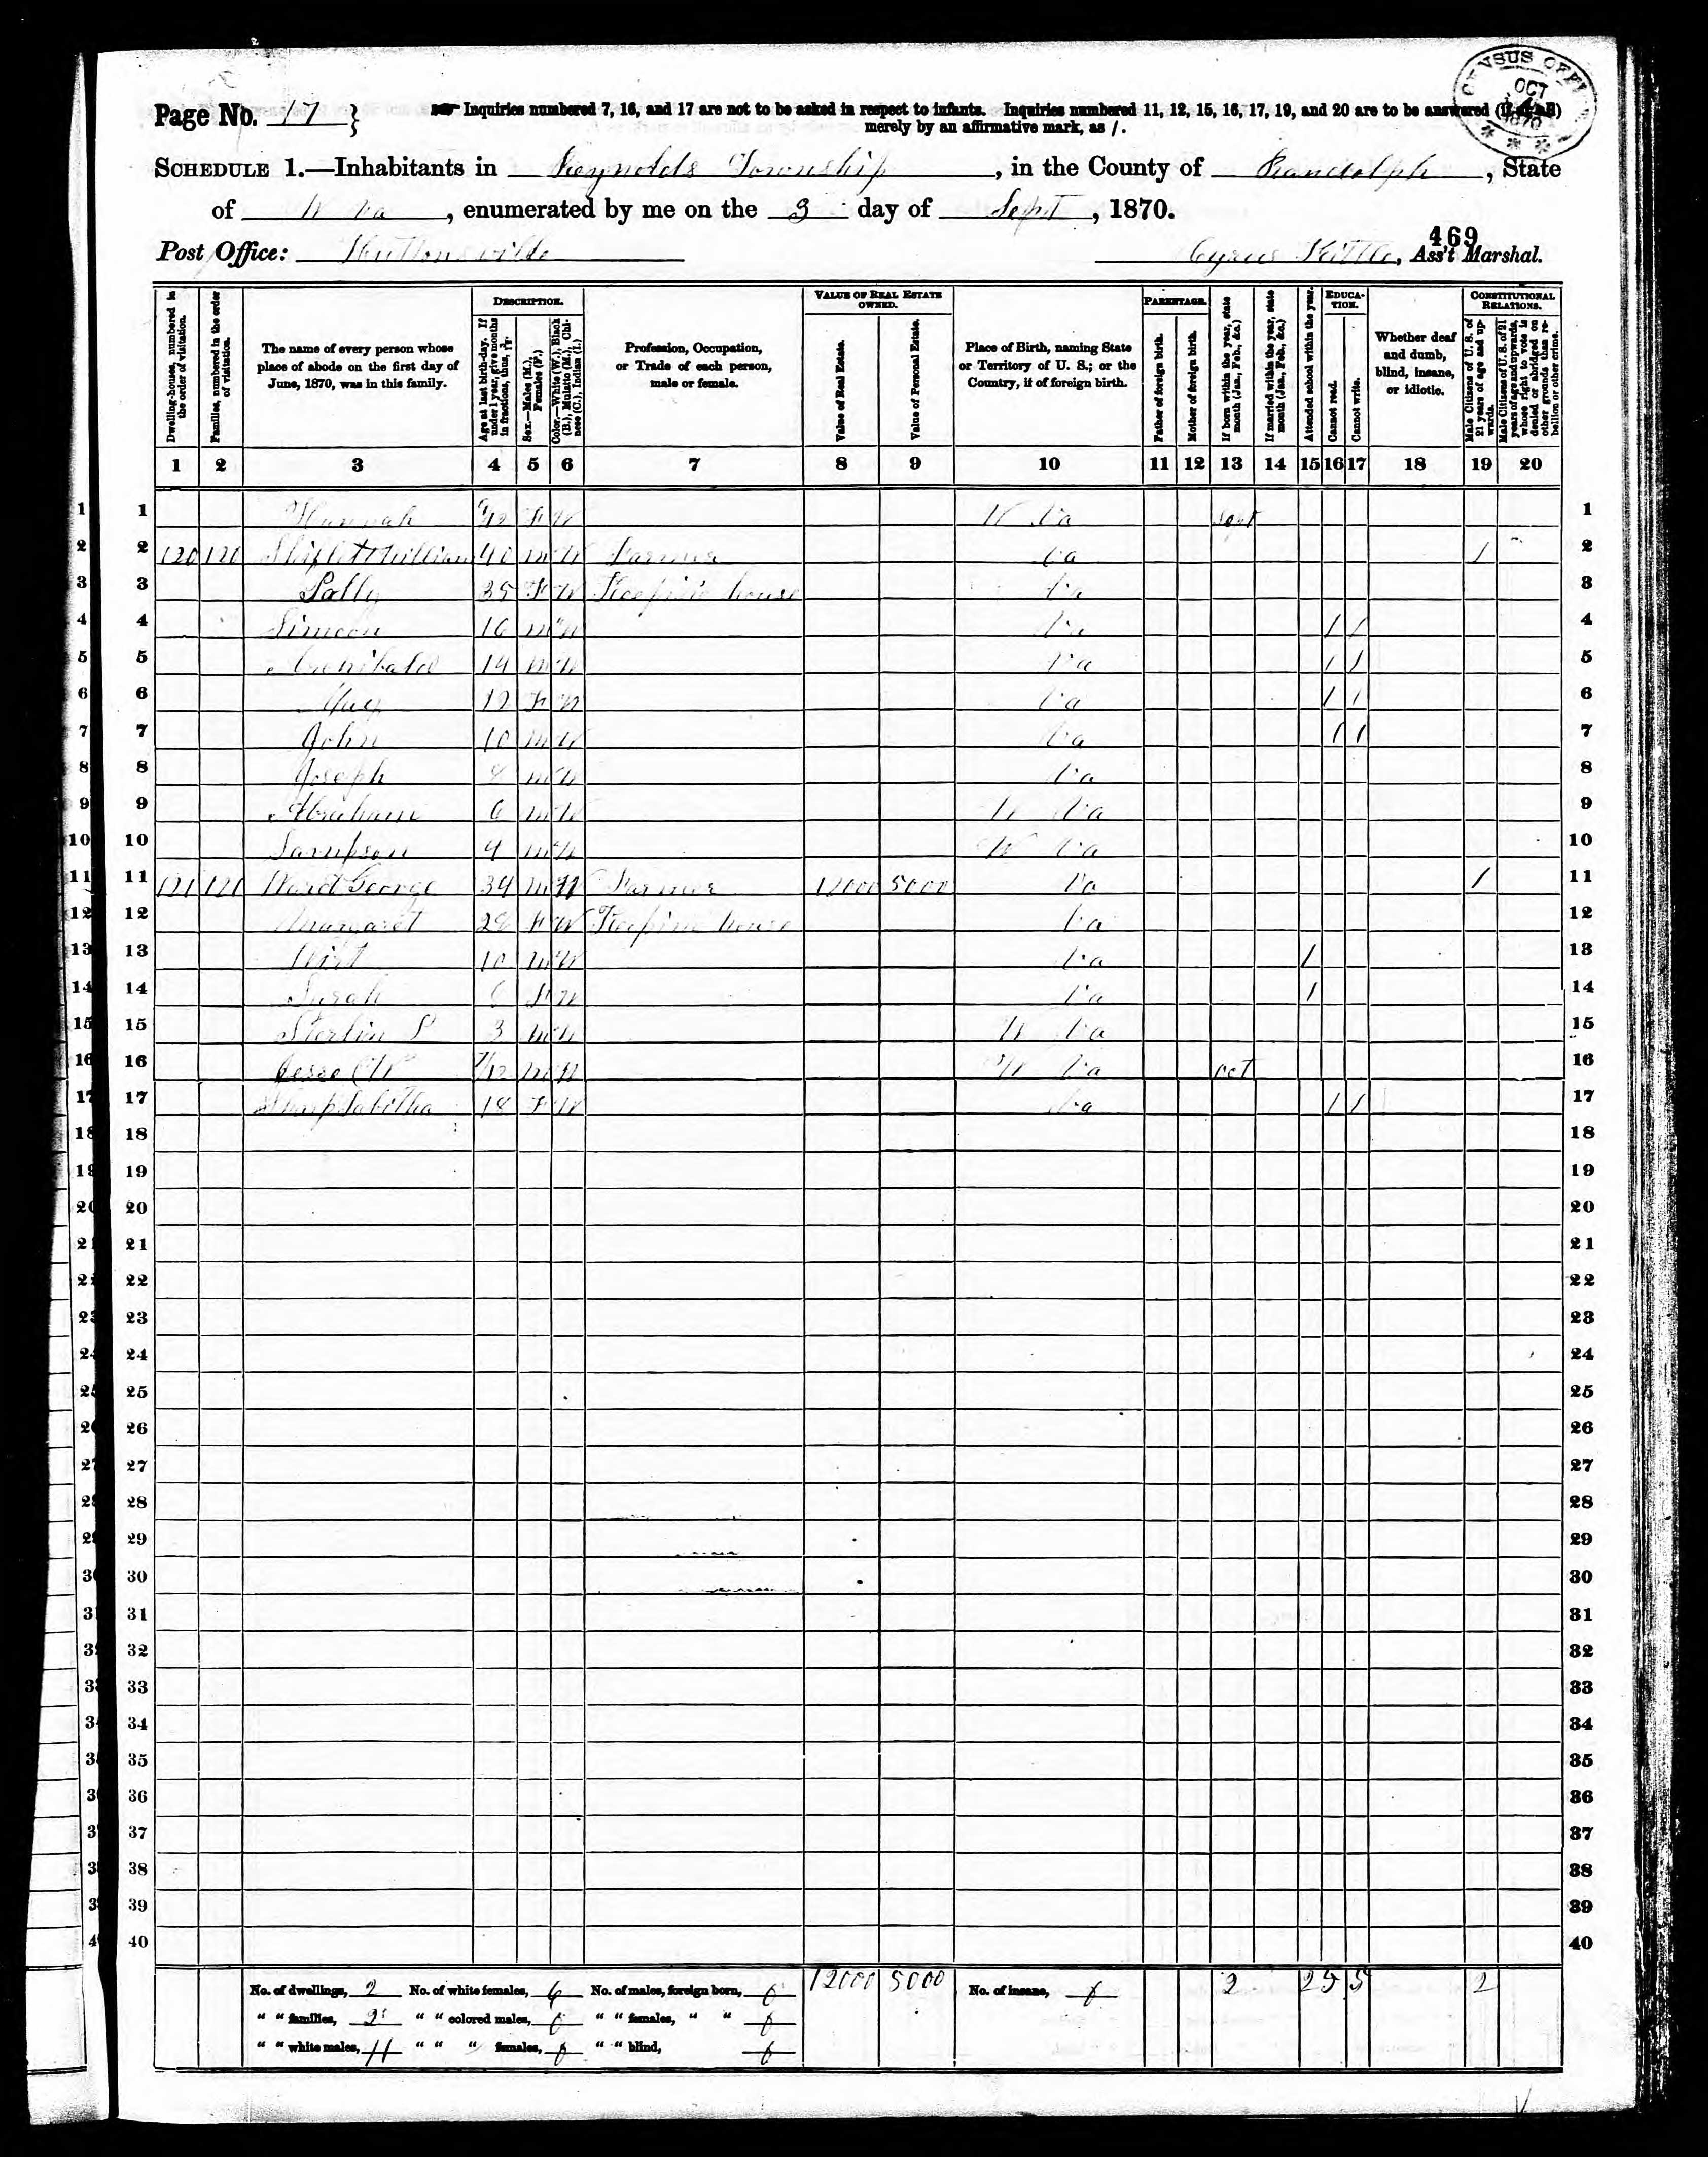 Page No. 17 }
Inquiries numbered 7, 16, and 17 are not to be asked in respect to infants. Inquiries numbered 11, 12, 15, 16, 17, 19, and 20 are to be answered (if at all)
merely by an affirmative mark, as /.
CENSUS OFFICE OCT 4 1870
SCHEDULE 1.—Inhabitants in Reynolds Township, in the County of Randolph, State
of W Va, enumerated by me on the 3 day of Sept, 1870.
469
Post Office: Huttonsville Cyrus Kittle, Ass't Marshal.
Dwelling-houses, numbered in the order of visitation.
Families, numbered in the order of visitation.
The name of every person whose place of abode on the first day of June, 1870, was in this family.
DESCRIPTION.
Age at last birth-day. If under 1 year, give months in fractions, thus, 3/12.
Sex.—Males (M.), Females (F.)
Color.—White (W.), Black (B.), Mulatto (M.), Chinese (C.), Indian (I.)
Profession, Occupation, or Trade of each person, male or female.
VALUE OF REAL ESTATE OWNED.
Value of Real Estate.
Value of Personal Estate.
Place of Birth, naming State or Territory of U. S.; or the Country, if of foreign birth.
PARENTAGE.
Father of foreign birth.
Mother of foreign birth.
If born within the year, state month (Jan., Feb., &c.)
If married within the year, state month (Jan., Feb., &c.)
Attended school within the year.
EDUCATION.
Cannot read.
Cannot write.
Whether deaf and dumb, blind, insane, or idiotic.
CONSTITUTIONAL RELATIONS.
Male Citizens of U. S. of 21 years of age and upwards.
Male Citizens of U. S. of 21 years of age and upwards, whose right to vote is denied or abridged on other grounds than rebellion or other crime.
1 2 3 4 5 6 7 8 9 10 11 12 13 14 15 16 17 18 19 20
1 Hannah 9/12 F W W Va Sept 1
2 120 120 Shiflett William 40 M W Farmer Va / 2
3 Sally 35 F W Keepin house Va 3
4 Simeon 16 M W Va / / 4
5 Archibald 14 M W Va / / 5
6 12 F W Va / / 6
7 John 10 M W Va / / 7
8 Joseph 8 M W Va 8
9 Abraham 6 M W W Va 9
10 Sampson 4 M W W Va 10
11 121 121 Ward George 34 M W Farmer 12000 5000 Va / 11
12 Margaret 28 F W Keepin house Va 12
13 10 M W Va / 13
14 Sarah F W Va / 14
15 Sterlin 3 M W W Va 15
16 Jesse W 7/12 M W W Va Oct 16
17 Sharp Tabitha 18 F W Va / / 17
18 18
19 19
20 20
21 21
22 22
23 23
24 24
25 25
26 26
27 27
28 28
29 29
30 30
31 31
32 32
33 33
34 34
35 35
36 36
37 37
38 38
39 39
40 40
No. of dwellings, 2 No. of white females, 6 No. of males, foreign born, 0 12000 5000 No. of insane, 0 2 2 5 5 2
" " families, 2 " " colored males, 0 " " females, " " 0
" " white males, 11 " " " females, 0 " " blind, 0